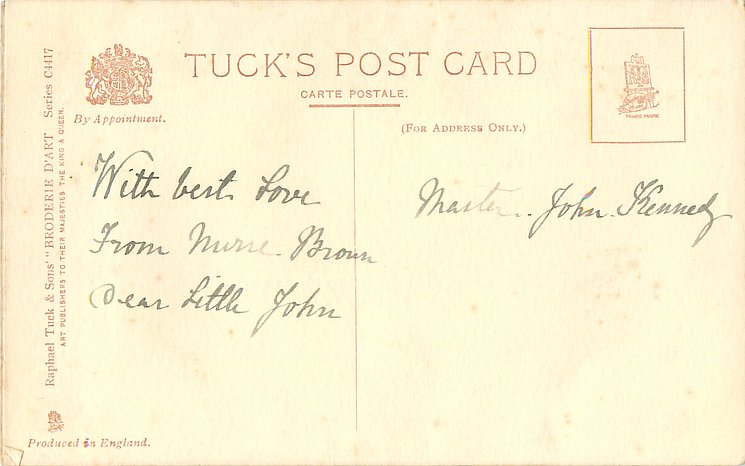 TUCK'S POST CARD
CARTE POSTALE.
By Appointment.
(FOR ADDRESS ONLY.)
TRADE MARK
Raphael Tuck & Sons' "BRODERIE D'ART" Series C1417
ART PUBLISHERS TO THEIR MAJESTIES THE KING & QUEEN.
With best Love
From Nurse Brown
Dear Little John
Master. John. Kennedy
Produced in England.